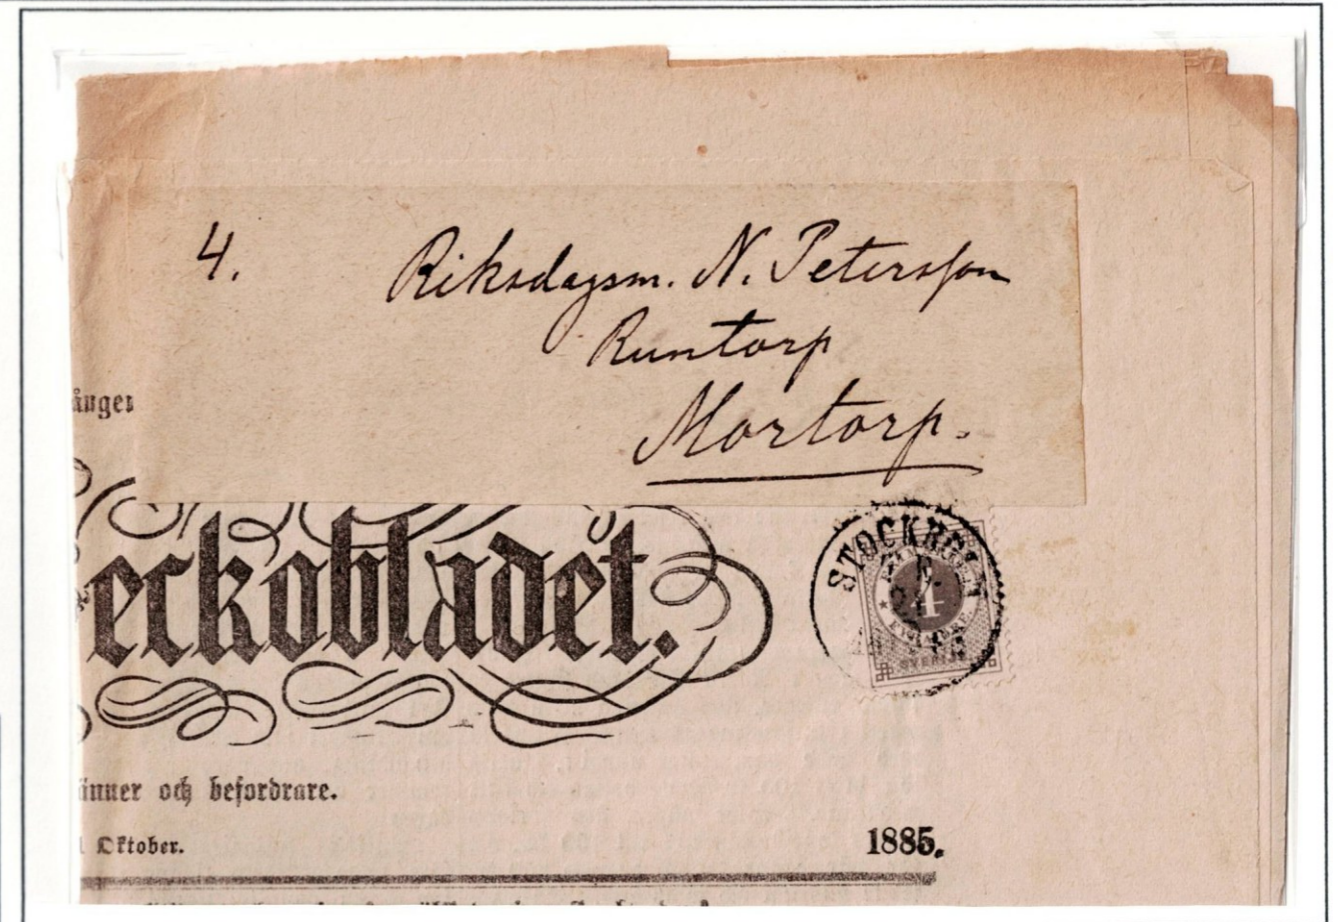 4.
Riksdagsm. N. Petersson
Runtorp
Mortorp.
ånger
eckobladet.
STOCKHOLM
4
SVERIGE
änner och befordrare.
1 Oktober.
1885.